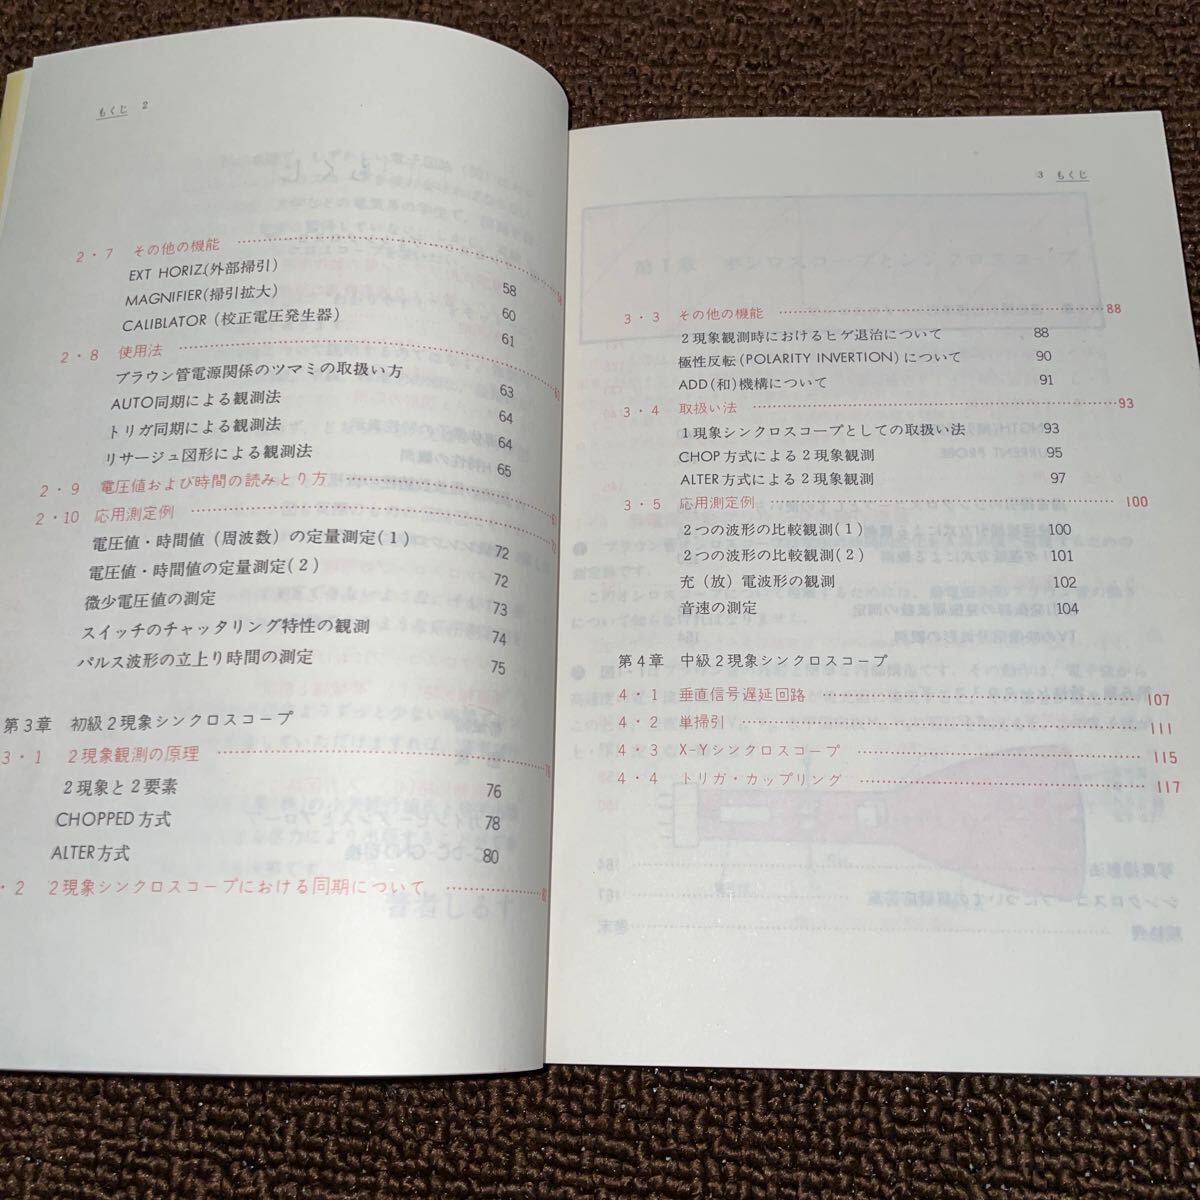 もくじ 2
2・7 その他の機能
EXT HORIZ(外部掃引) 58
MAGNIFIER(掃引拡大) 60
CALIBLATOR(校正電圧発生器) 61
2・8 使用法
ブラウン管電源関係のツマミの取扱い方 63
AUTO同期による観測法 64
トリガ同期による観測法 64
リサージュ図形による観測法 65
2・9 電圧値および時間の読みとり方
2・10 応用測定例
電圧値・時間値(周波数)の定量測定(1) 72
電圧値・時間値の定量測定(2) 72
微少電圧値の測定 73
スイッチのチャッタリング特性の観測 74
パルス波形の立上り時間の測定 75
第3章 初級2現象シンクロスコープ
3・1 2現象観測の原理
2現象と2要素 76
CHOPPED方式 78
ALTER方式 80
・2 2現象シンクロスコープにおける同期について
3 もくじ
3・3 その他の機能 88
2現象観測時におけるヒゲ退治について 88
極性反転(POLARITY INVERTION)について 90
ADD(和)機構について 91
3・4 取扱い法 93
1現象シンクロスコープとしての取扱い法 93
CHOP方式による2現象観測 95
ALTER方式による2現象観測 97
3・5 応用測定例 100
2つの波形の比較観測(1) 100
2つの波形の比較観測(2) 101
充(放)電波形の観測 102
音速の測定 104
第4章 中級2現象シンクロスコープ
4・1 垂直信号遅延回路 107
4・2 単掃引 111
4・3 X-Yシンクロスコープ 115
4・4 トリガ・カップリング 117